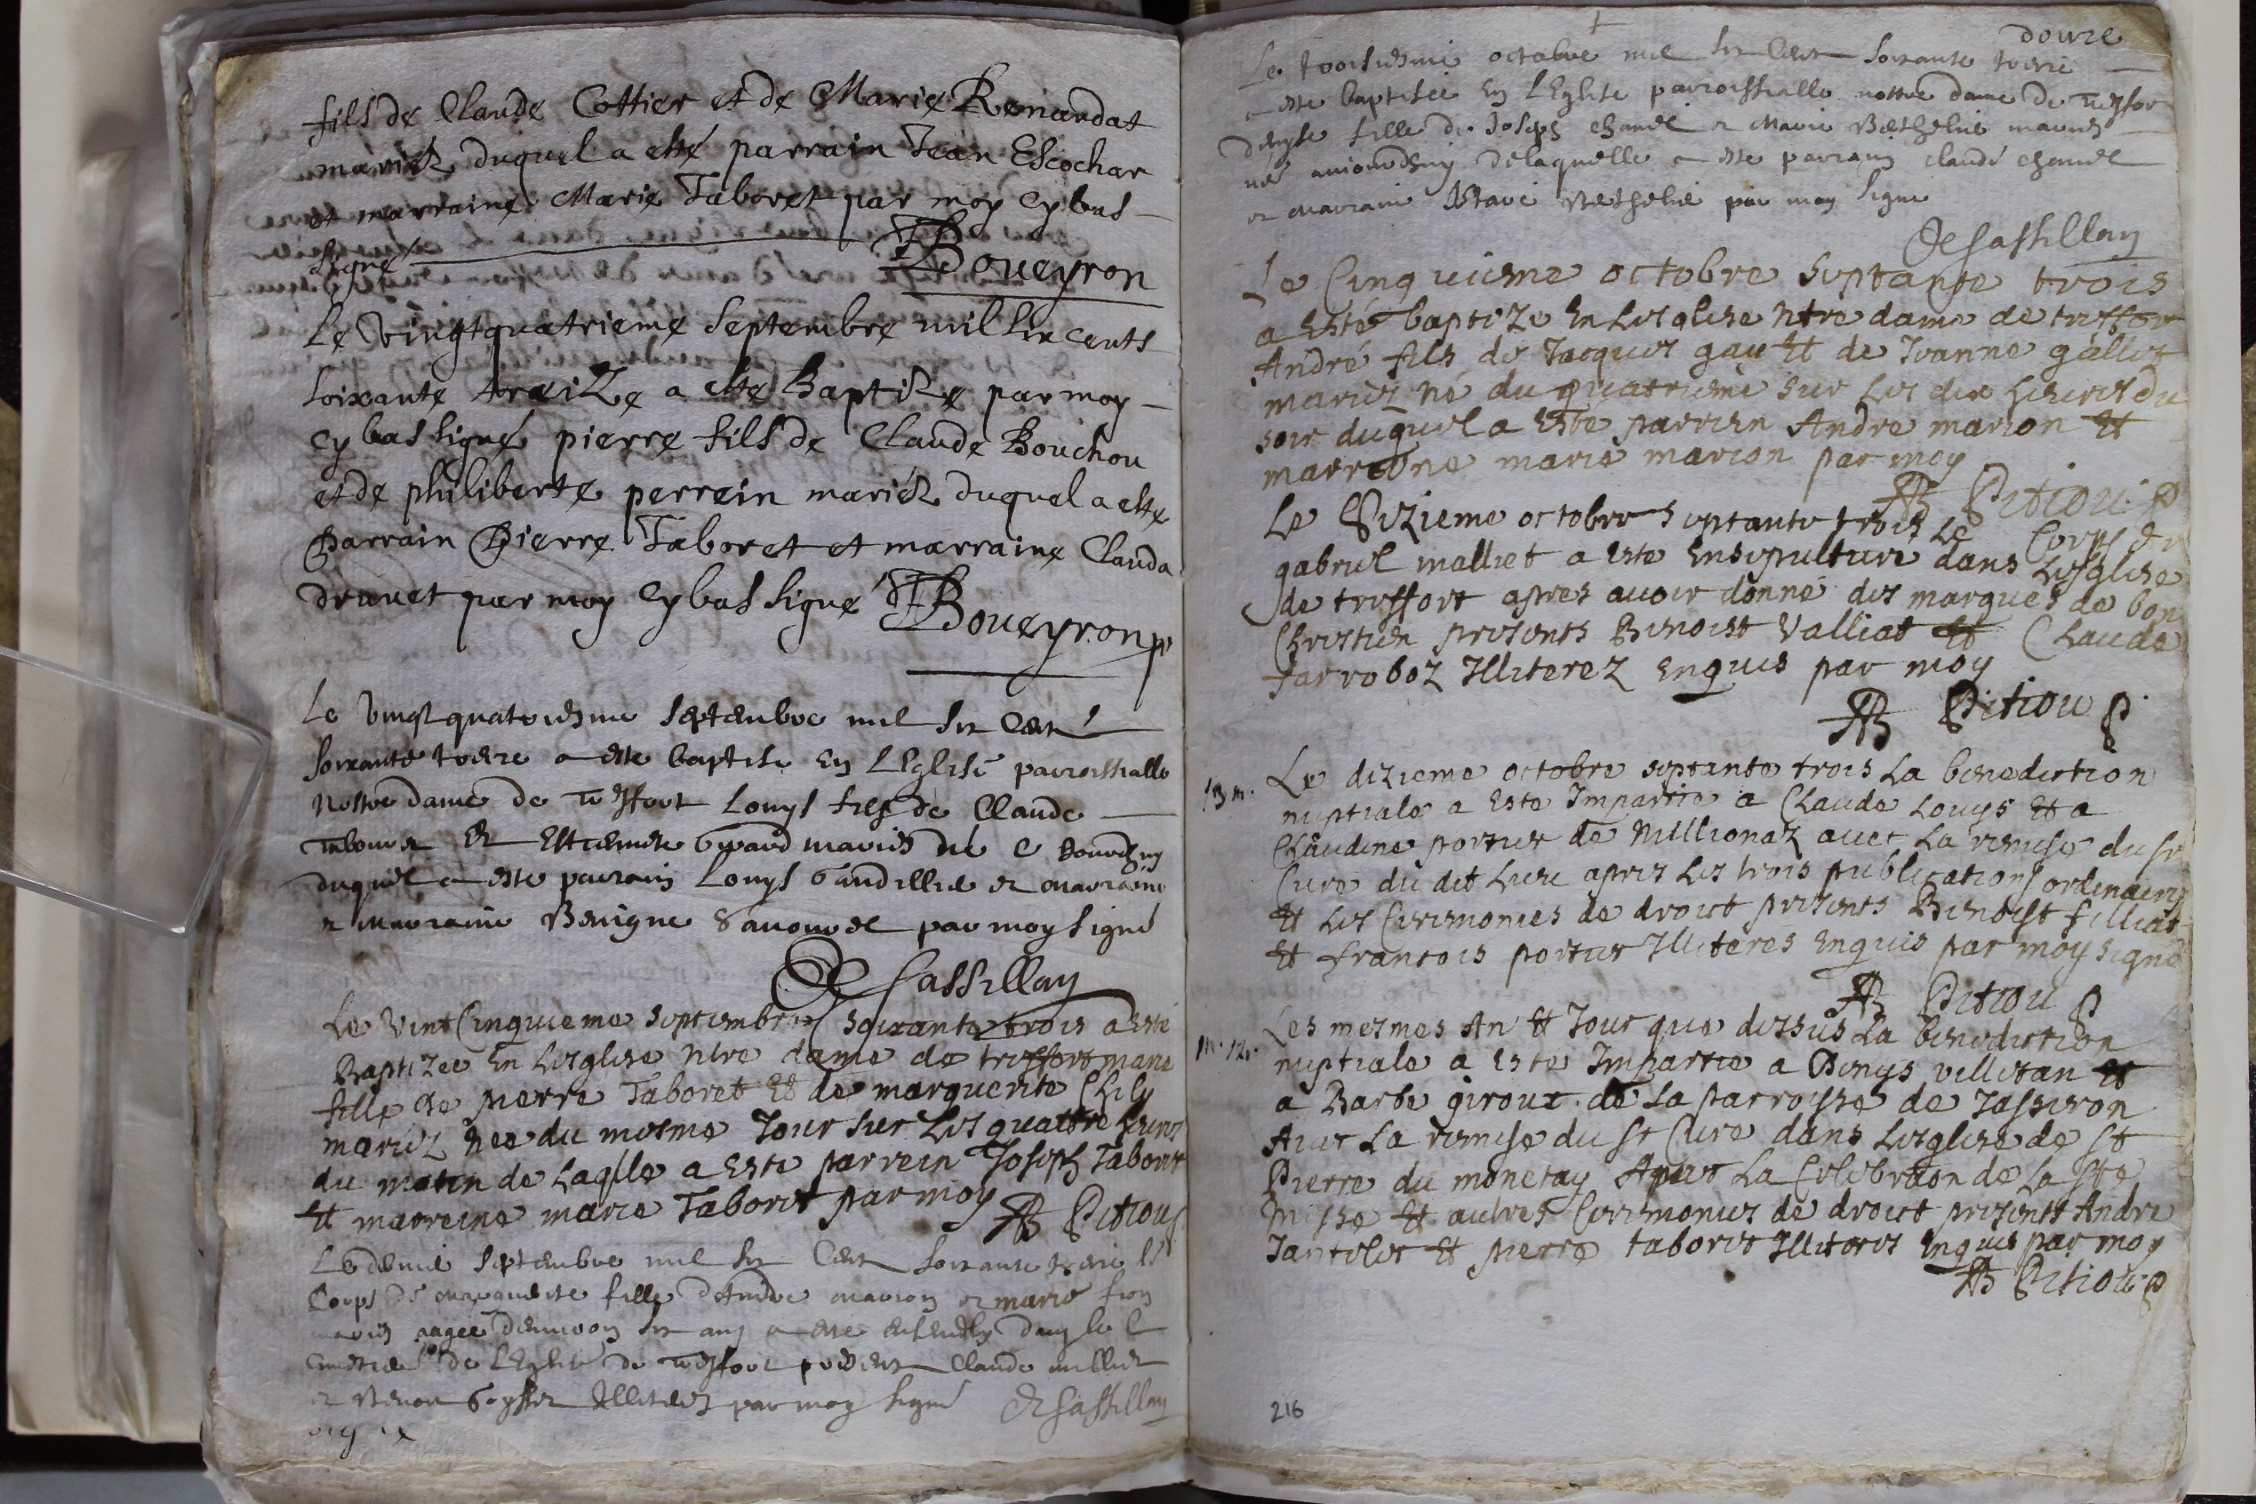 fils de Claude Cottier et de Marie Renandat
mariéz duquel a esté parrain Jean Escochar
et marraine Marie Taboret par moy cy bas
signé Boueyron
Le vingtquatrieme septembre mil six cents
soixante treize a este Baptize par moy
cy bas signé pierre fils de Claude Bouchou
et de philiberte perrein mariéz duquel a este
Parrain Pierre Taboret et marraine Clauda
druuet par moy cy bas signé Boueyron p
Le vingt quatriesme septembre mil six cent
soixante treize a este baptise en l'Eglise parroissialle
nostre dame de treffort Louys fils de Claude
Tabouret et Estiennete Girard mariés né
duquel a este parrain Louys Gandillie et marraine
et marraine Benigne par moy signé
De Cassillay
Le vint Cinquieme septembre soixante trois a este
Baptizee en lesglise ntre dame de treffort marie
fille de pierre Taboret Et de marguerite
mariez nee du mesme Jour sur les quattre heures
du matin de laqlle a este parrein Joseph Taboret
Et marreine marie Taboret par moy Pitiou
septembre mil six cent soixante treze le
Corps de fille d'Andre marion et marie
mariés aagee d'environ six ans a este
de l'Eglise de treffort present Claude millier
et par moy signé De Cassillay
douze
Le troisiesme octobre mil six cent soixante treize
a este baptisée en l'Eglise parroissialle nostre dame de treffor
denyse fille de Joseph chanel et Marie Bethelie mariés
née aujourdhuy de laquelle a este parrain claude chanel
et marraine Bethelie par moy signe
De Cassillay
Le Cinquieme octobre septante trois
a esté baptize en lesglise ntre dame de treffor
André fils de Jacques gay Et de Jeanne gallet
mariez né du quatrieme sur les dix heures du
soir duquel a este parrien Andre marion Et
marreine marie marion par moy
Pitiou p
Le Sizieme octobre septante trois Le Corps de
gabriel malliet a este Ensepulture dans lesglise
de treffort apres avoir donné des marques de bon
Christien presents Benoist Valliat Et Claude
farroboz Illiterez enquis par moy
Pitiou p
13 m. Le dizieme octobre septante trois La benediction
nuptiale a este Impartie a Claude Louys Et a
Claudine portier de Millionaz avec La remise du sr
Cure du dit Lieu apres les trois publications ordinaires
Et les Ceremonies de droict presents Benoist filliat
Et francois portier Illiteres enquis par moy signé
Pitiou p
m. 12. Les mesmes An Et Jour que dessus La benediction
nuptiale a este Impartie a Denys villetan Et
a Barbe giroux de La parroisse de Jasseron
Avec La remise du sr Cure dans lesglise de st
Pierre du monetay Apres La Celebraon de La ste
Messe Et autres Ceremonies de droict presents Andre
Jantelet Et pierre taboret Illiteres enquis par moy
Pitiou p
216